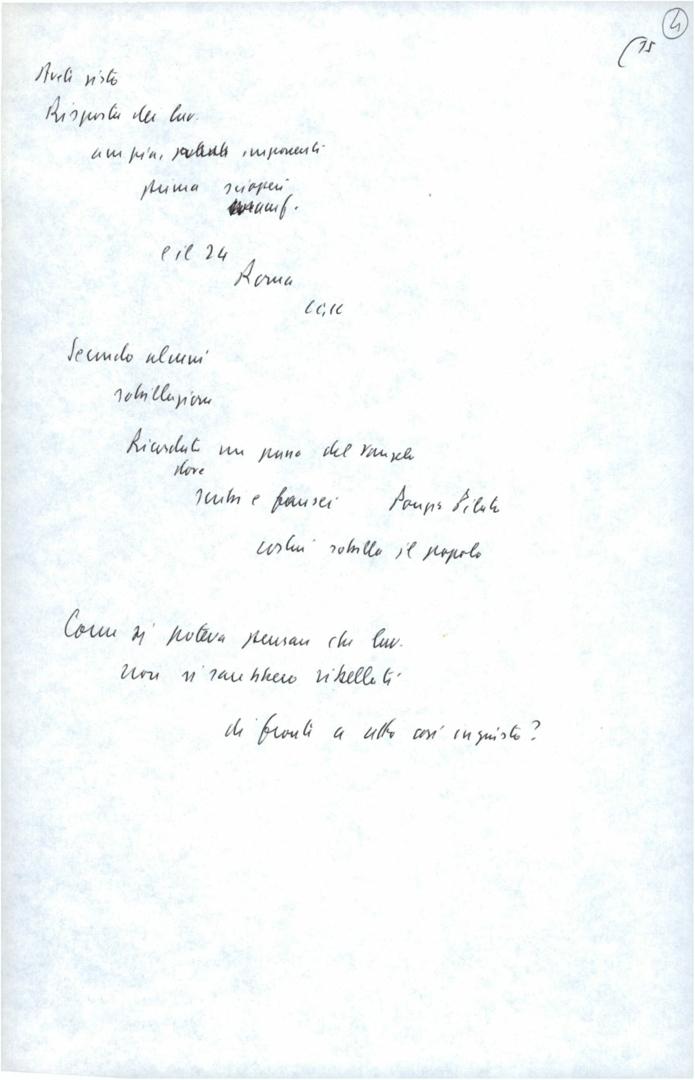 4
15
Avete visto
Risposta dei lav.
ampia, imponenti
prima scioperi
manif.
e il 24
Roma
Secondo alcuni
sobillazione
Ricordate un passo del vangelo
dove
scribi e farisei Ponzio Pilato
costui sobilla il popolo
Come si poteva pensare che lav.
non si sarebbero ribellati
di fronte a atto così ingiusto?